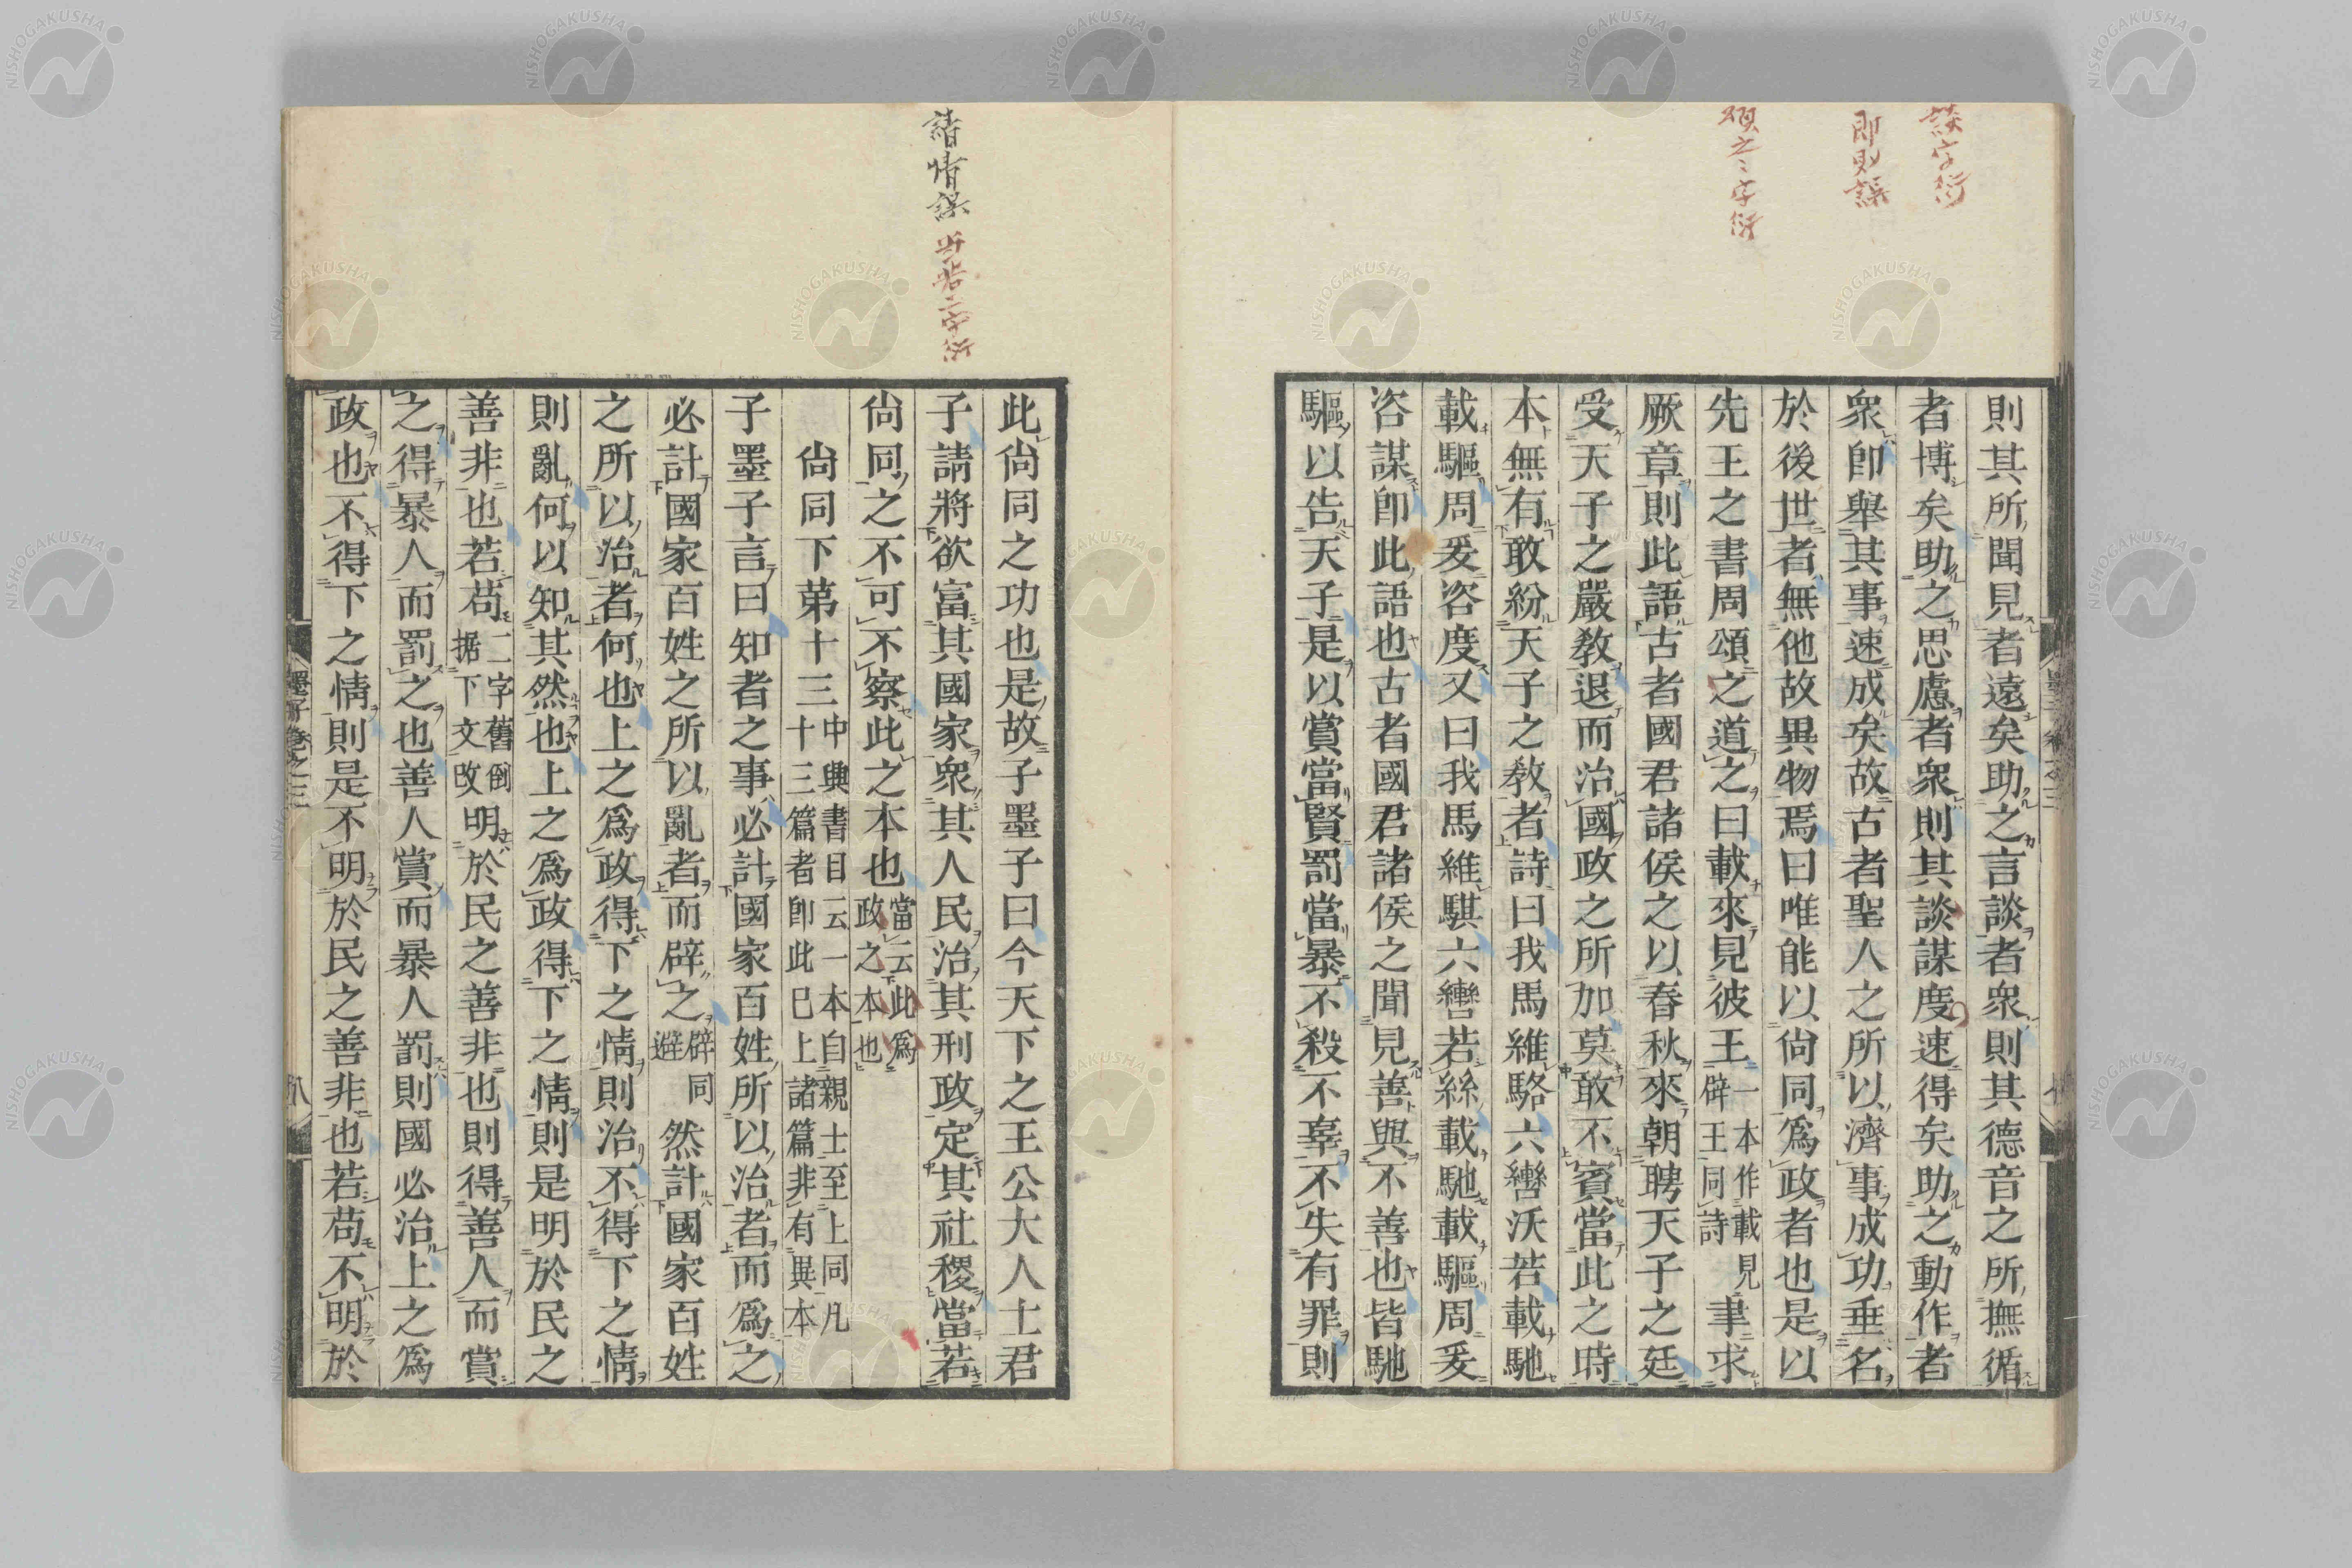 談字衍
即則誤
頌之二字衍
則其所聞見者遠矣助之言談者衆則其德音之所撫循
者博矣助之思慮者衆則其談謀度速得矣助之動作者
衆卽舉其事速成矣故古者聖人之所以濟事成功垂名
於後世者無他故異物焉曰唯能以尙同爲政者也是以
先王之書周頌之道之曰載來見彼王一本作載見辟王同詩聿求
厥章則此語古者國君諸侯之以春秋來朝聘天子之廷
受天子之嚴敎退而治國政之所加莫敢不賓當此之時
本無有敢紛天子之敎者詩曰我馬維駱六轡沃若載馳
載驅周爰咨度又曰我馬維騏六轡若絲載馳載驅周爰
咨謀卽此語也古者國君諸侯之聞見善與不善也皆馳
驅以告天子是以賞當賢罰當暴不殺不辜不失有罪則
請情誤
当若二字衍
此尙同之功也是故子墨子曰今天下之王公大人士君
子請將欲富其國家衆其人民治其刑政定其社稷當若
尙同之不可不察此之本也當云此爲政之本也
尙同下第十三中興書目云一本自親士至上同凡十三篇者卽此已上諸篇非有異本
子墨子言曰知者之事必計國家百姓所以治者而爲之
必計國家百姓之所以亂者而辟之辟同避然計國家百姓
之所以治者何也上之爲政得下之情則治不得下之情
則亂何以知其然也上之爲政得下之情則是明於民之
善非也若苟二字舊倒据下文改明於民之善非也則得善人而賞
之得暴人而罰之也善人賞而暴人罰則國必治上之爲
政也不得下之情則是不明於民之善非也若苟不明於
墨子卷之三
八
NISHOGAKUSHA